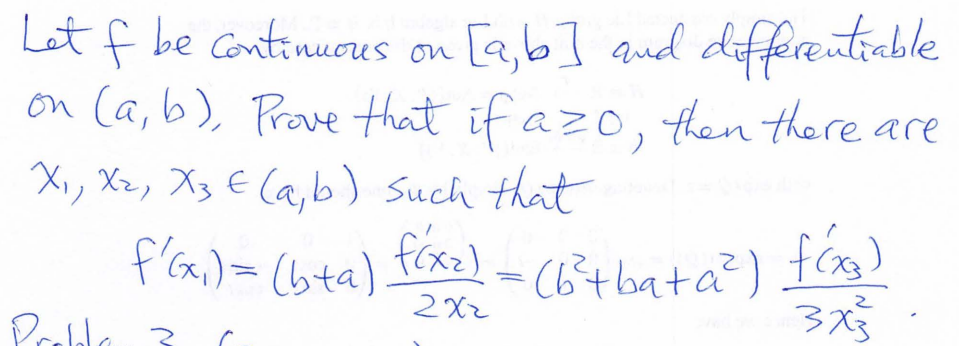 Let f be continuous on [a,b] and differentiable
on (a,b). Prove that if a≥0, then there are
x₁, x₂, x₃ ∈ (a,b) such that
f'(x₁) = (b+a) f'(x₂)/2x₂ = (b²+ba+a²) f'(x₃)/3x₃².